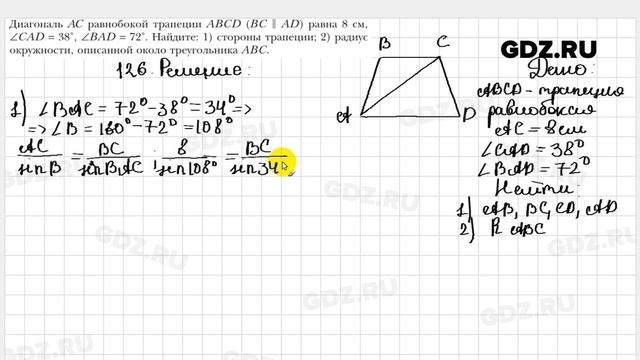 Диагональ AC равнобокой трапеции ABCD (BC ∥ AD) равна 8 см,
∠CAD = 38°, ∠BAD = 72°. Найдите: 1) стороны трапеции; 2) радиус
окружности, описанной около треугольника ABC.
GDZ.RU
126. Решение:
1) ∠BAC = 72° - 38° = 34° =>
=> ∠B = 180° - 72° = 108°
AC/sin B = BC/sin BAC ; 8/sin 108° = BC/sin 34°
B C
A D
Дано:
ABCD - трапеция
равнобокая
AC = 8 см
∠CAD = 38°
∠BAD = 72°
Найти:
1) AB, BC, CD, AD
2) R ABC
GDZ.RU
GDZ.RU
GDZ.RU
GDZ.RU